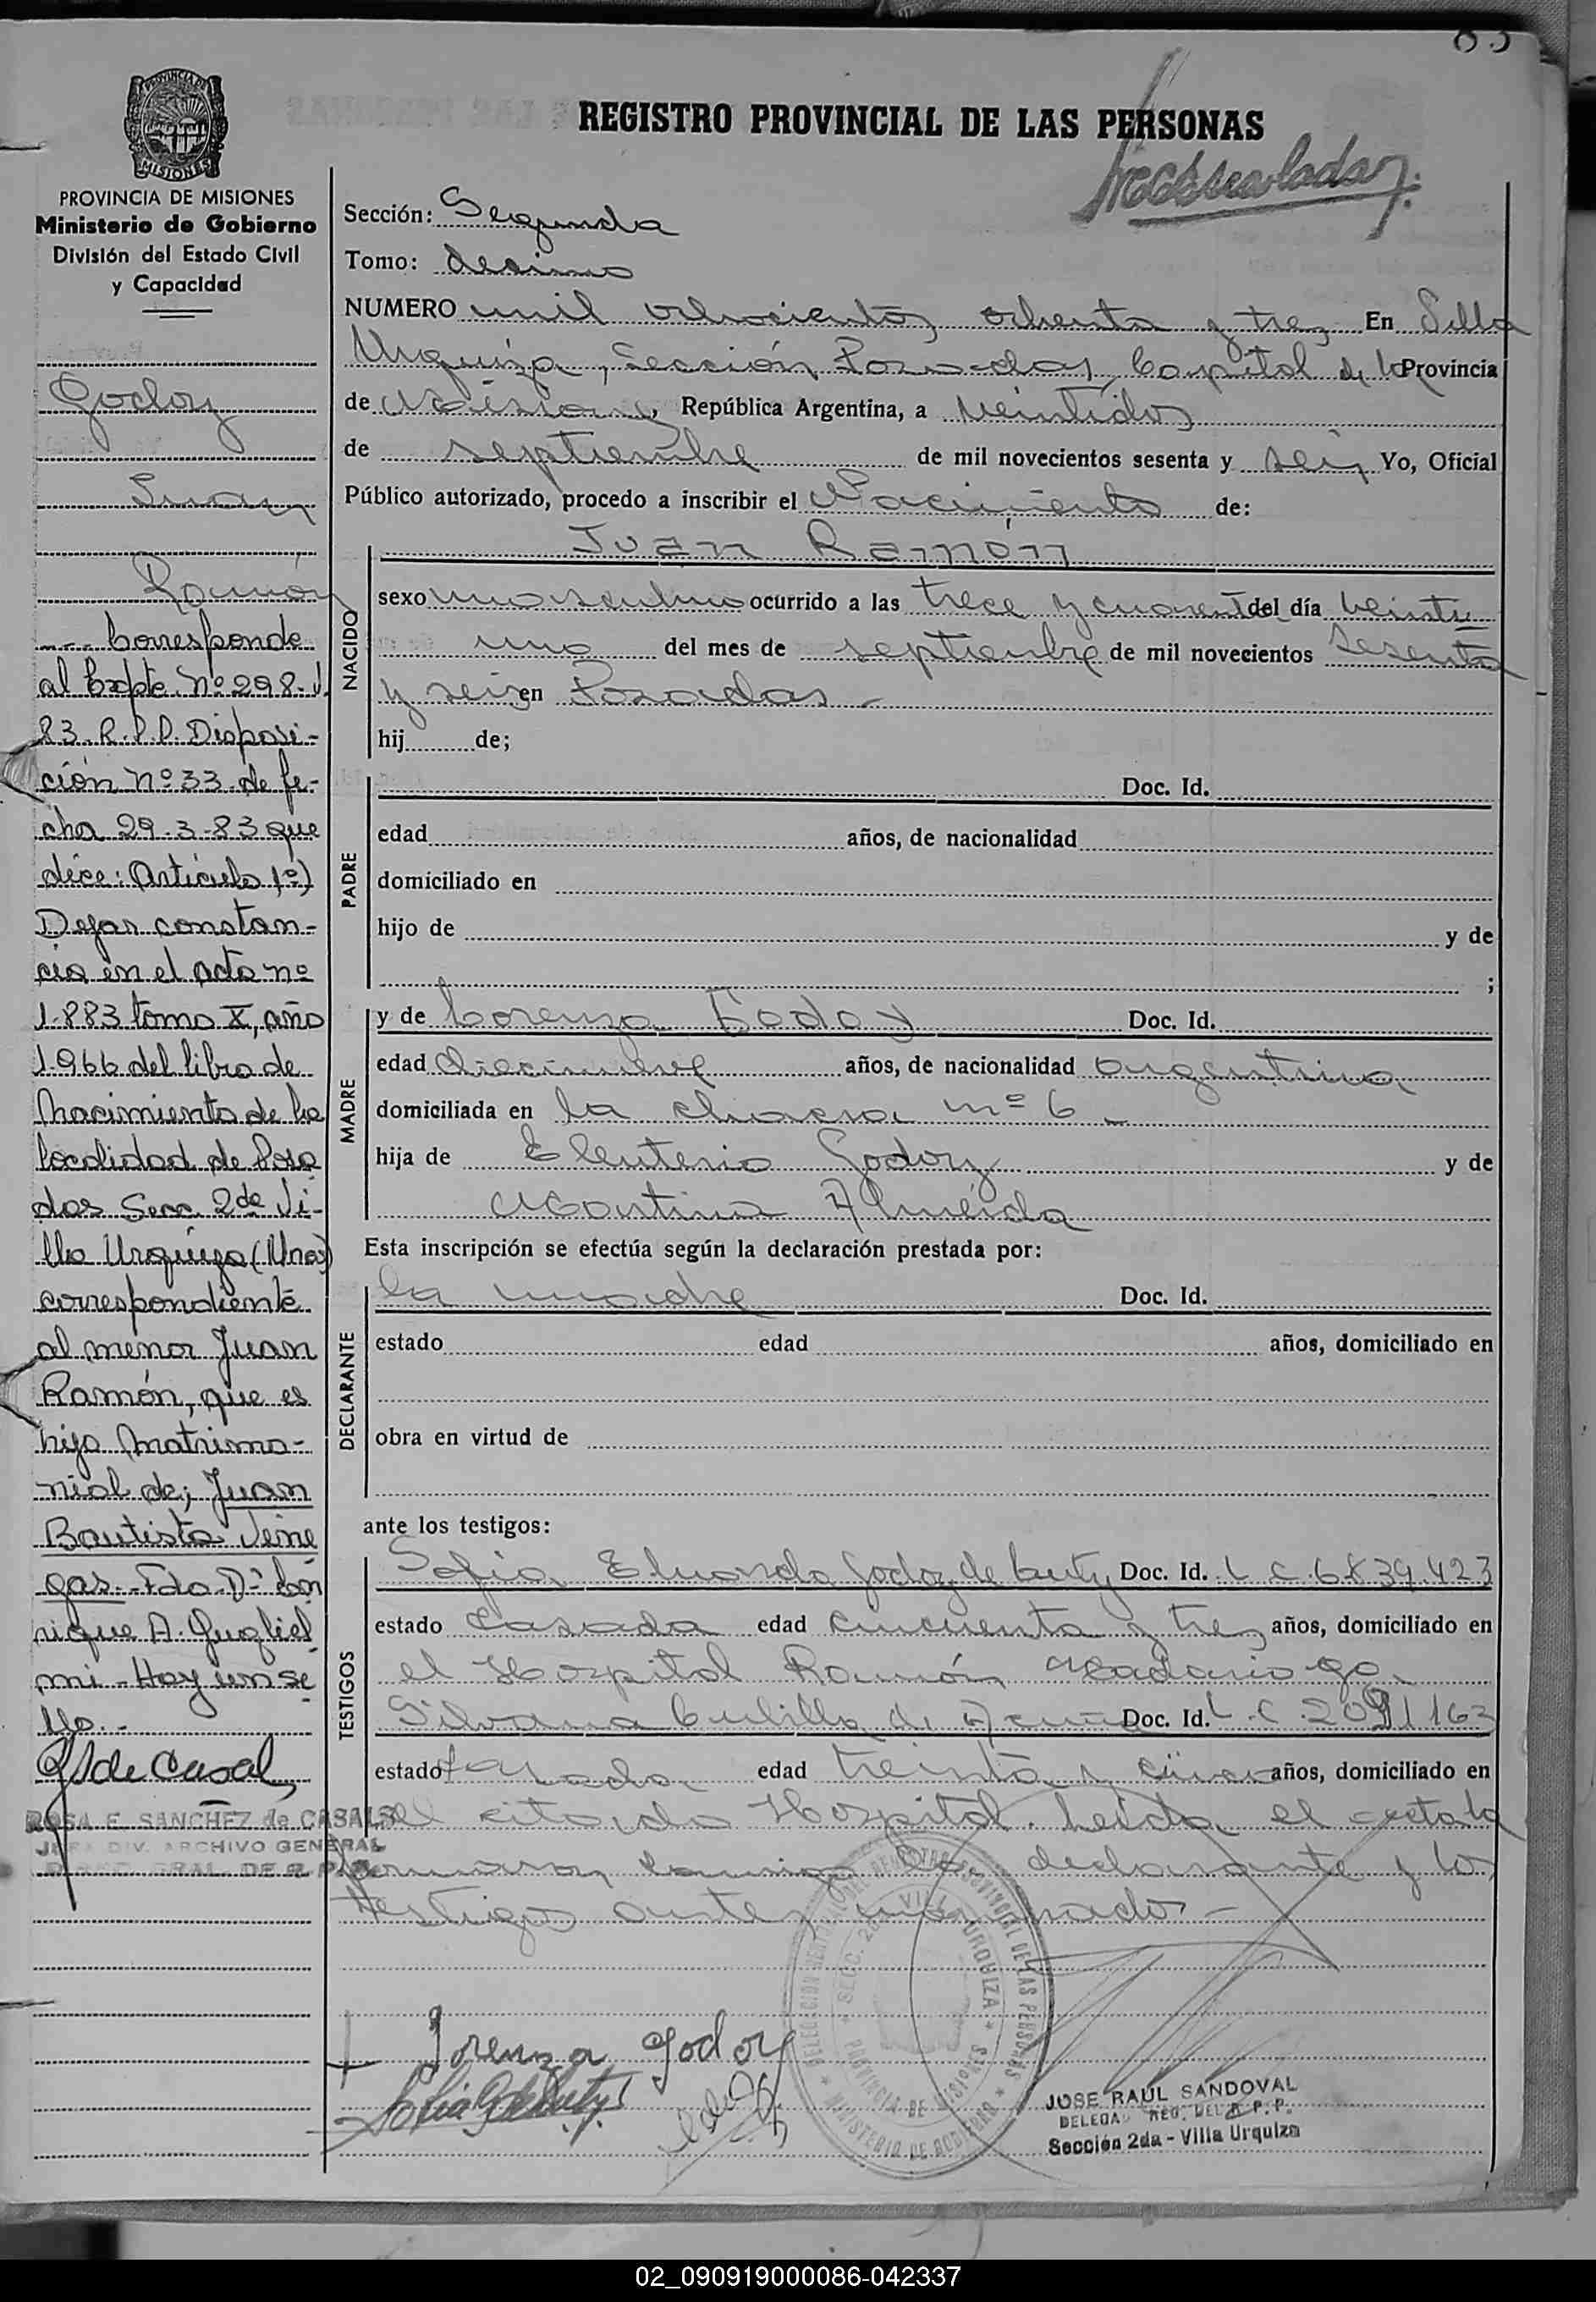 83
REGISTRO PROVINCIAL DE LAS PERSONAS
PROVINCIA DE MISIONES
MISIONES
PROVINCIA DE MISIONES
Ministerio de Gobierno
División del Estado Civil
y Capacidad
Godoy
Juan
Ramón
Corresponde
al Expte. Nº 298-J.
83. R.P.P. Disposi-
ción nº 33 de fe-
cha 29-3-83 que
dice: Artículo 1º)
Dejar constan-
cia en el acta nº
1.883 tomo X, año
1.966 del libro de
Nacimiento de la
localidad de Posa
das Secc. 2da Vi-
lla Urquiza (Mnes)
correspondiente
al menor Juan
Ramón, que es
hijo matrimo-
nial de; Juan
Bautista Vene
gas. Fdo. Dr En
rique A. Gugliel
mi - Hay un se
llo.-
de Casal
ROSA E. SANCHEZ de CASALS
JEFA DIV. ARCHIVO GENERAL
Sección: Segunda
Tomo: decimo
NUMERO mil ochocientos ochenta y tres En Villa
Urquiza, Sección Posadas, Capital de la Provincia
de Misiones, República Argentina, a veintidos
de septiembre de mil novecientos sesenta y seis Yo, Oficial
Público autorizado, procedo a inscribir el Nacimiento de:
Juan Ramón
NACIDO
sexo masculino ocurrido a las trece y cuarenta del día veinti
uno del mes de septiembre de mil novecientos sesenta
y seis en Posadas -
hij de;
PADRE
Doc. Id.
edad años, de nacionalidad
domiciliado en
hijo de y de
;
MADRE
y de Lorenza Godoy Doc. Id.
edad diecinueve años, de nacionalidad argentina
domiciliada en la chacra nº 6 -
hija de Eleuterio Godoy y de
Martina Almeida
Esta inscripción se efectúa según la declaración prestada por:
DECLARANTE
la madre Doc. Id.
estado edad años, domiciliado en
obra en virtud de
ante los testigos:
TESTIGOS
Sofia Godoy de Doc. Id. L C 6.839.423
estado casada edad cincuenta y tres años, domiciliado en
el Hospital Ramón Madariaga
Silvana de Acuña Doc. Id. L.C.
estado casada edad treinta y cinco años, domiciliado en
el citado Hospital. Leída el acta la
firman conmigo la declarante y los
testigos antes
Lorenza Godoy
DELEGACION REGISTRO PROVINCIAL DE LAS PERSONAS
SECC. 2da VILLA URQUIZA
PROVINCIA DE MISIONES
MINISTERIO DE GOBIERNO
JOSE RAUL SANDOVAL
DELEGADO REG. DEL R. P. P.
Sección 2da - Villa Urquiza
02_090919000086-042337